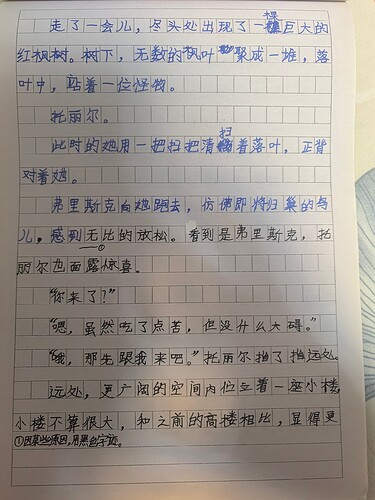 走了一会儿，尽头处出现了一棵巨大的
红枫树。树下，无数的枫叶聚成一堆，落
叶中，站着一位怪物。
托丽尔。
此时的她用一把扫把清扫着落叶，正背
对着她。
弗里斯克向她跑去，仿佛即将归巢的鸟
儿，感到无比的放松。看到是弗里斯克，托
丽尔也面露惊喜。
“你来了？”
“嗯，虽然吃了点苦，但没什么大碍。”
“哦，那先跟我来吧。”托丽尔指了指远处。
远处，更广阔的空间内位立着一座小楼，
小楼不算很大，和之前的高楼相比，显得更
①因某些原因，用黑色字迹。